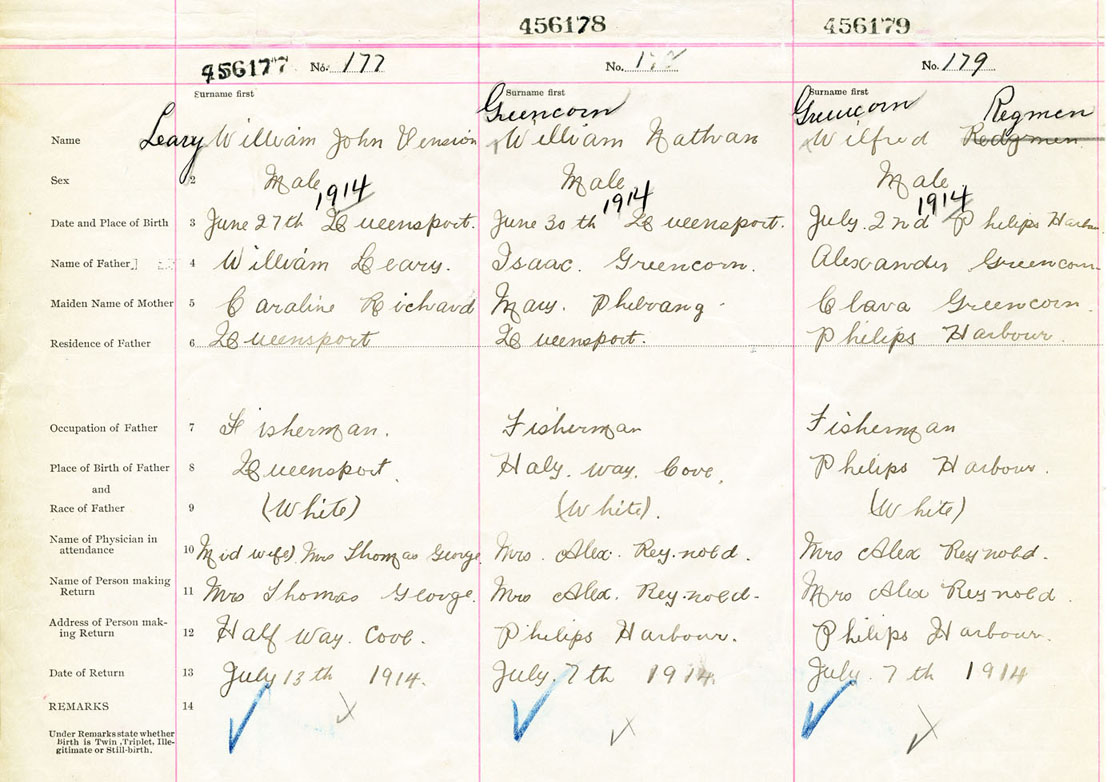 456178 456179
456177 No. 177 No. No. 179
Surname first Surname first Surname first
Greencorn Greencorn Regmen
Name Leary William John Vension William Nathan Wilfred Redgmen
Sex 2 Male Male Male
1914 1914 1914
Date and Place of Birth 3 June 27th Queensport. June 30th Queensport. July. 2nd Philips Harbour
Name of Father 4 William Leary. Isaac. Greencorn. Alexander Greencorn
Maiden Name of Mother 5 Caraline Richard Mary. Clara Greencorn.
Residence of Father 6 Queensport Queensport. Philips Harbour.
Occupation of Father 7 Fisherman. Fisherman Fisherman
Place of Birth of Father 8 Queensport. Haly. way. Cove. Philips Harbour.
and
Race of Father 9 (White) (White). (White)
Name of Physician in
attendance 10 Midwife) Mrs Thomas George. Mrs. Alex. Reynold. Mrs Alex Reynold.
Name of Person making
Return 11 Mrs Thomas George. Mrs Alex. Reynold. Mrs Alex Reynold.
Address of Person mak-
ing Return 12 Half way. Cove. Philips Harbour. Philips Harbour.
Date of Return 13 July 13th 1914. July. 7th 1914. July. 7th 1914
REMARKS 14
Under Remarks state whether
Birth is Twin, Triplet, Ille-
gitimate or Still-birth.